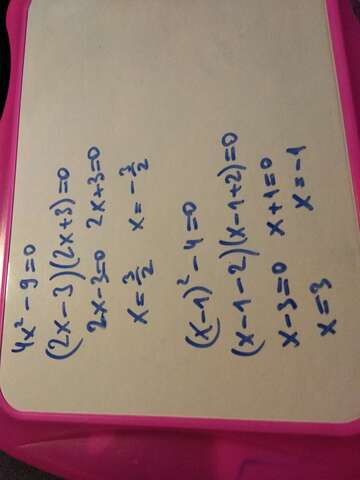 4x² - 9 = 0
(2x - 3)(2x + 3) = 0
2x - 3 = 0 2x + 3 = 0
x = 3/2 x = - 3/2
(x - 1)² - 4 = 0
(x - 1 - 2)(x - 1 + 2) = 0
x - 3 = 0 x + 1 = 0
x = 3 x = -1